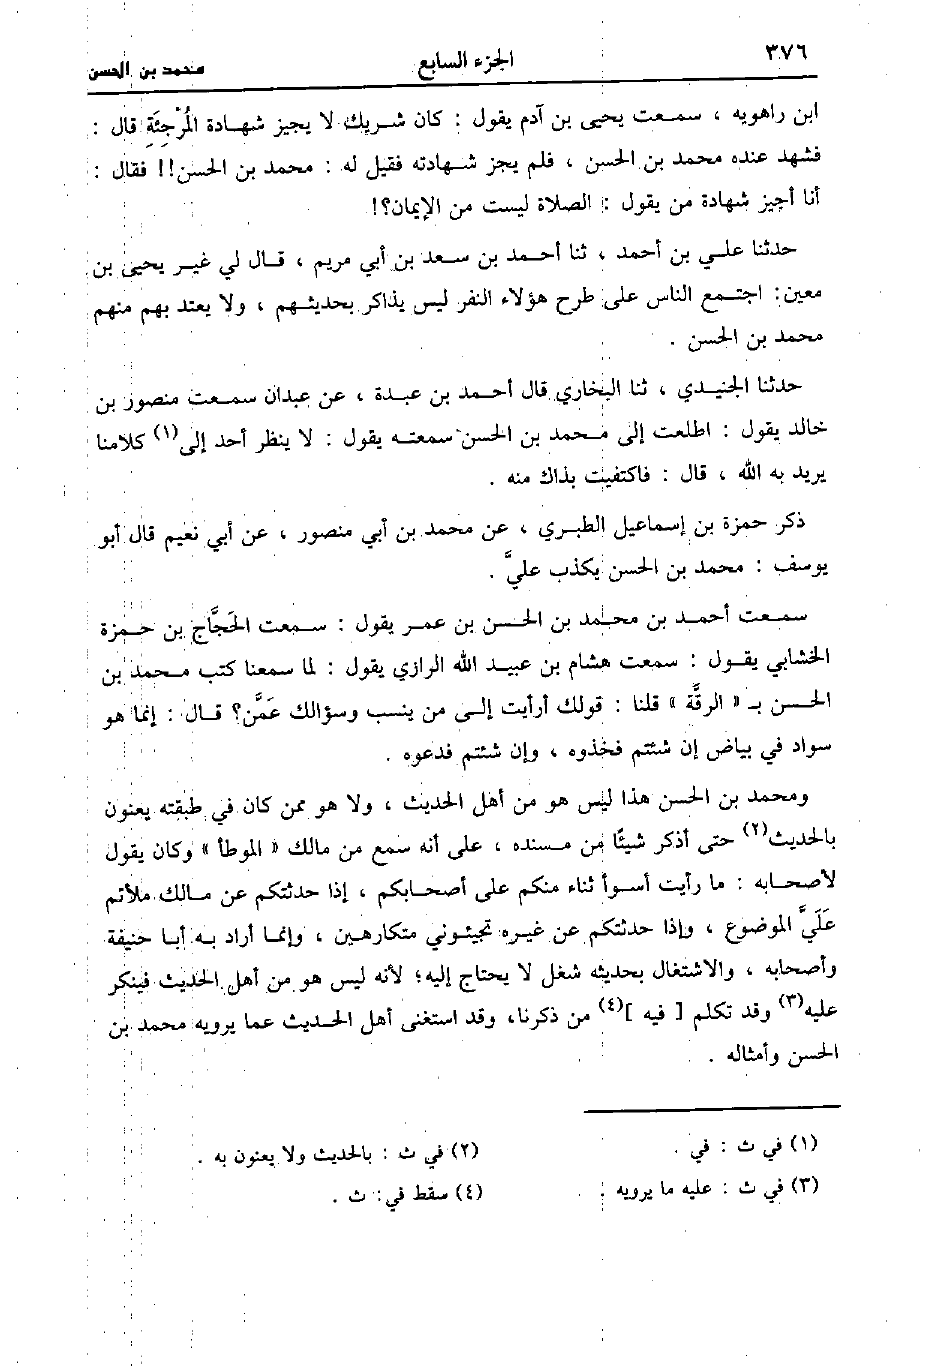 ٣٧٦ الجزء السابع محمد بن الحسن
ابن راهويه ، سمعت يحيى بن آدم يقول : كان شريك لا يجيز شهادة المُرْجِئَةِ قال :
فشهد عنده محمد بن الحسن ، فلم يجز شهادته فقيل له : محمد بن الحسن!! فقال :
أنا أجيز شهادة من يقول : الصلاة ليست من الإيمان؟!
حدثنا علي بن أحمد ، ثنا أحمد بن سعد بن أبي مريم ، قال لي غير يحيى بن
معين: اجتمع الناس على طرح هؤلاء النفر ليس يذاكر بحديثهم ، ولا يعتد بهم منهم
محمد بن الحسن .
حدثنا الجنيدي ، ثنا البخاري قال أحمد بن عبدة ، عن عبدان سمعت منصور بن
خالد يقول : اطلعت إلى محمد بن الحسن سمعته يقول : لا ينظر أحد إلى(١) كلامنا
يريد به الله ، قال : فاكتفيت بذاك منه .
ذكر حمزة بن إسماعيل الطبري ، عن محمد بن أبي منصور ، عن أبي نعيم قال أبو
يوسف : محمد بن الحسن يكذب عليَّ .
سمعت أحمد بن محمد بن الحسن بن عمر يقول : سمعت الحَجَّاج بن حمزة
الخشابي يقول : سمعت هشام بن عبيد الله الرازي يقول : لما سمعنا كتب محمد بن
الحسن بـ « الرقَّة » قلنا : قولك أرأيت إلى من ينسب وسؤالك عَمَّن؟ قال : إنما هو
سواد في بياض إن شئتم فخذوه ، وإن شئتم فدعوه .
ومحمد بن الحسن هذا ليس هو من أهل الحديث ، ولا هو ممن كان في طبقته يعنون
بالحديث(٢) حتى أذكر شيئًا من مسنده ، على أنه سمع من مالك « الموطأ » وكان يقول
لأصحابه : ما رأيت أسوأ ثناء منكم على أصحابكم ، إذا حدثتكم عن مالك ملأتم
عَلَيَّ الموضوع ، وإذا حدثتكم عن غيره تجيئوني متكارهين ، وإنما أراد به أبا حنيفة
وأصحابه ، والاشتغال بحديثه شغل لا يحتاج إليه؛ لأنه ليس هو من أهل الحديث فينكر
عليه(٣) وقد تكلم [ فيه ](٤) من ذكرنا، وقد استغنى أهل الحديث عما يرويه محمد بن
الحسن وأمثاله .
(١) في ث : في . (٢) في ث : بالحديث ولا يعنون به .
(٣) في ث : عليه ما يرويه . (٤) سقط في: ث .